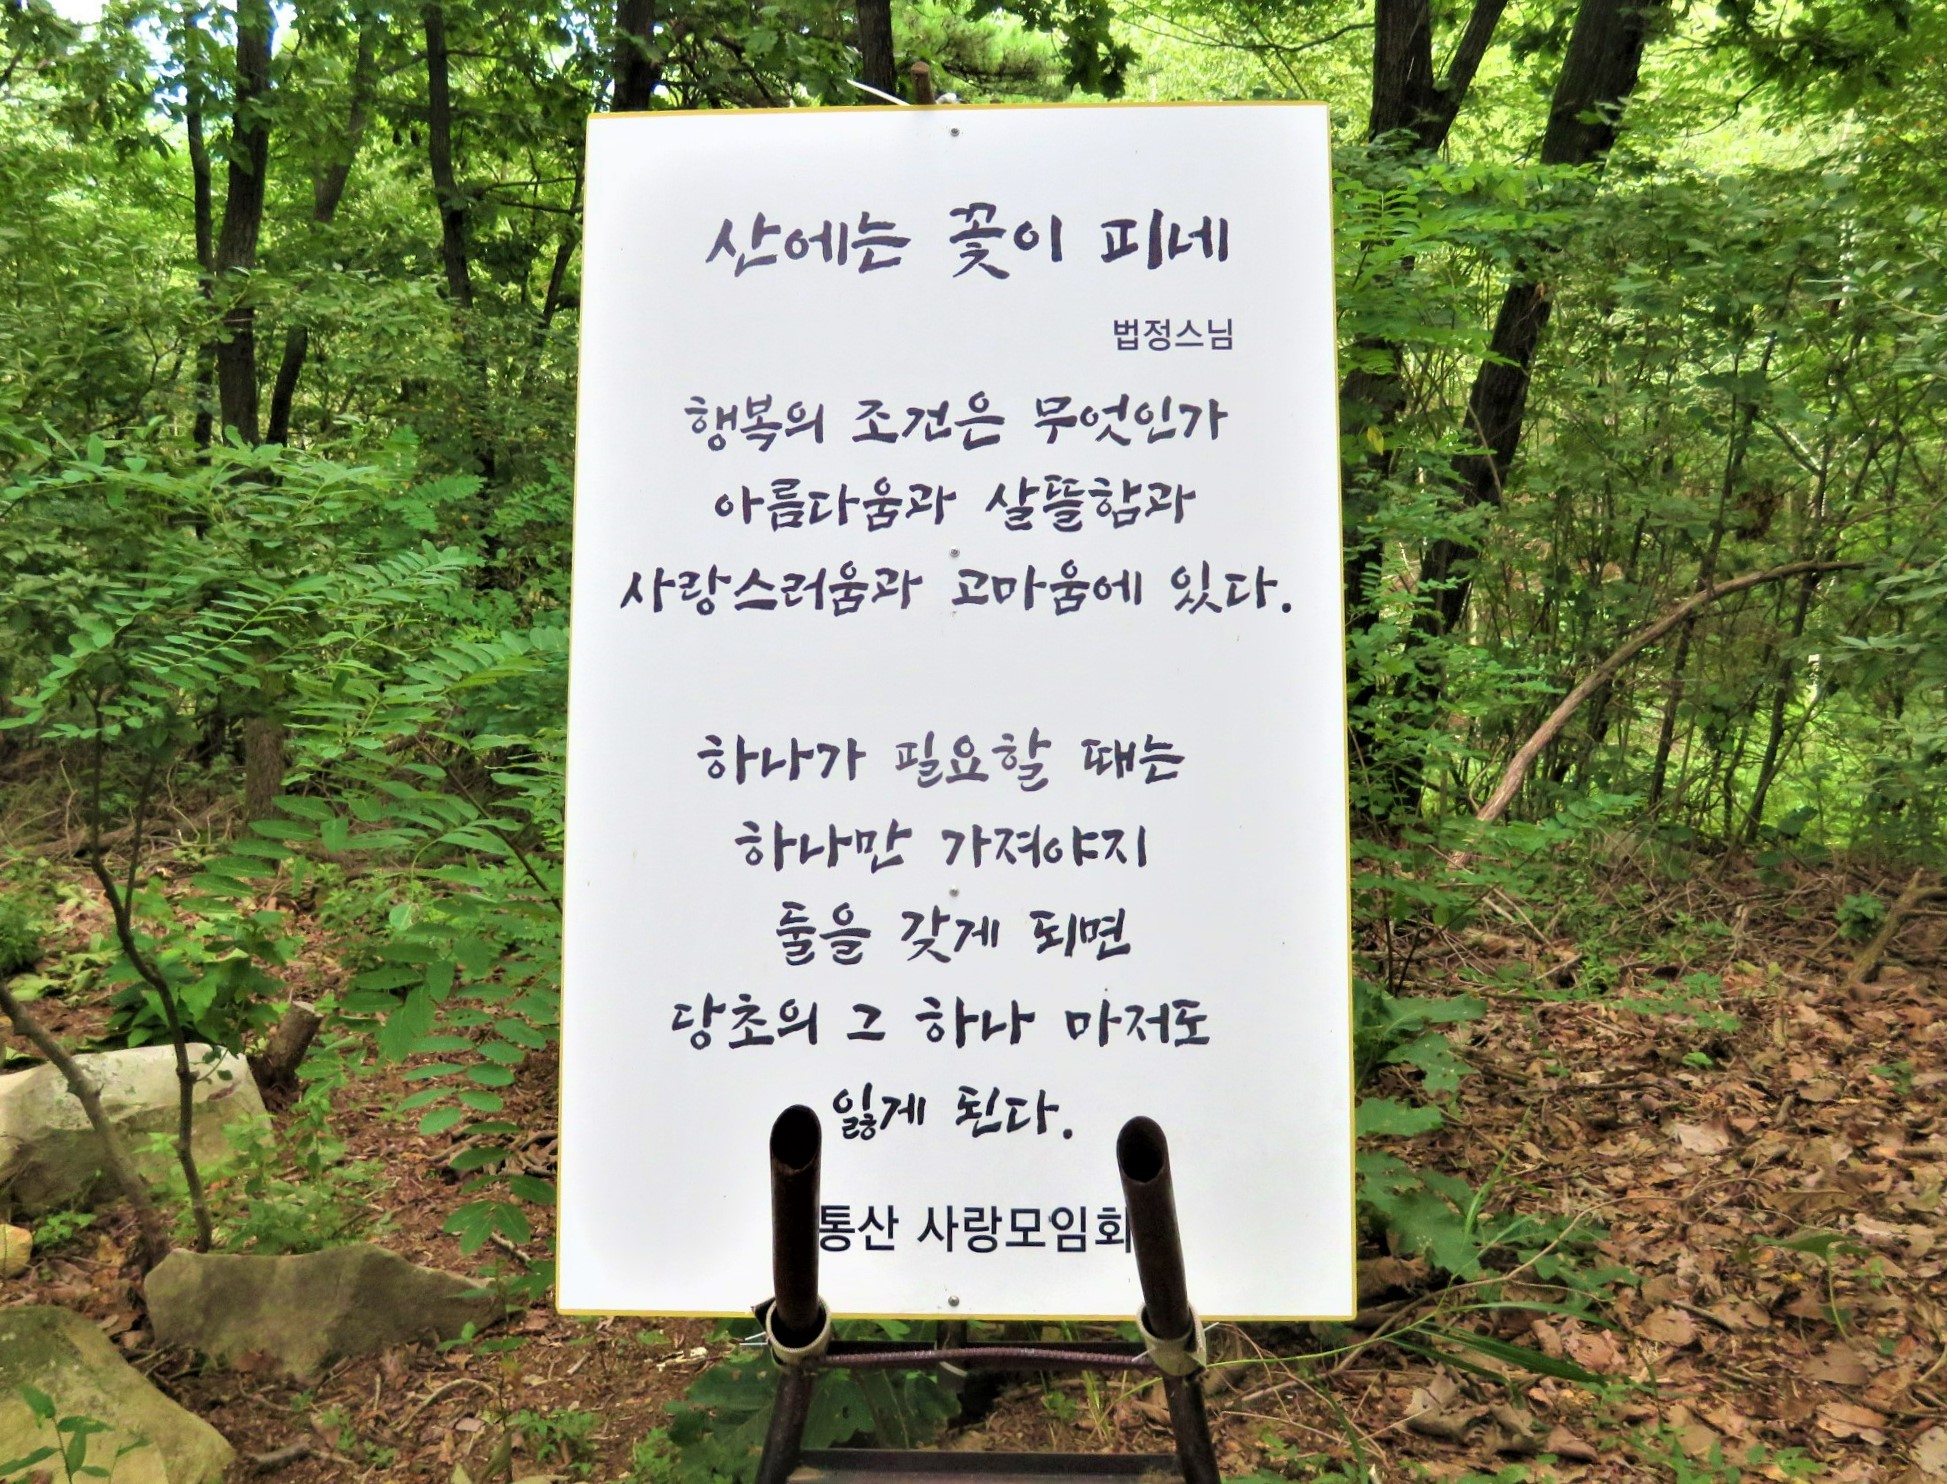 산에는 꽃이 피네
법정스님
행복의 조건은 무엇인가
아름다움과 살뜰함과
사랑스러움과 고마움에 있다.
하나가 필요할 때는
하나만 가져야지
둘을 갖게 되면
당초의 그 하나 마저도
잃게 된다.
통산 사랑모임회